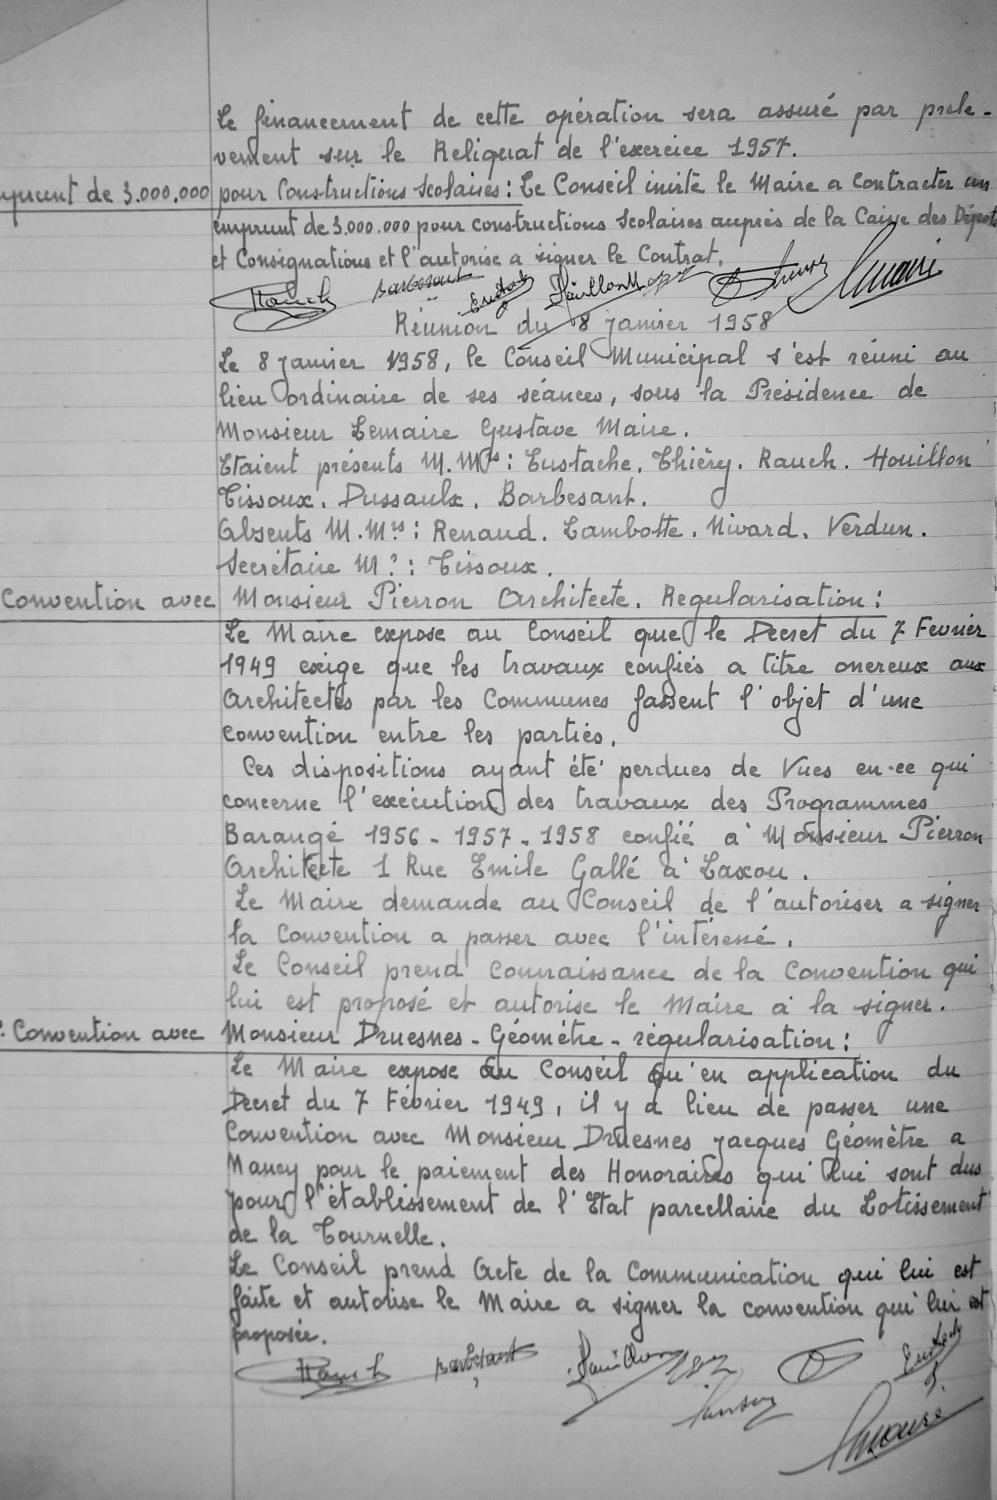 Le financement de cette opération sera assuré par prele-
vement sur le Reliquat de l'exercice 1957.
mprunt de 3.000.000 pour Constructions Scolaires : Le Conseil invite le Maire a Contracter un
emprunt de 3.000.000 pour constructions Scolaires auprès de la Caisse des Dépots
et Consignations et l'autorise a signer le Contrat.
Rauch Barbesant Eustache Houillon Lemaire
Réunion du 8 janvier 1958
Le 8 janvier 1958, le Conseil Municipal s'est réuni au
lieu ordinaire de ses séances, sous la Présidence de
Monsieur Lemaire Gustave Maire.
Etaient présents M.Mrs : Eustache. Thiéry. Rauch. Houillon
Tissoux. Dussaulx. Barbesant.
Absents M.Mrs : Renaud. Lambotte. Nivard. Verdun.
Secrétaire Mr : Tissoux.
Convention avec Monsieur Pierron Architecte. Regularisation :
Le Maire expose au Conseil que le Decret du 7 Fevrier
1949 exige que les travaux confiés a titre onereux aux
Architectes par les Communes fassent l'objet d'une
convention entre les parties.
Ces dispositions ayant été perdues de Vues en-ce qui
concerne l'execution des travaux des Programmes
Barangé 1956 - 1957 - 1958 confié à Monsieur Pierron
Architecte 1 Rue Emile Gallé à Laxou.
Le Maire demande au Conseil de l'autoriser a signer
la Convention a passer avec l'intéressé.
Le Conseil prend connaissance de la Convention qui
lui est proposé et autorise le Maire à la signer.
Convention avec Monsieur Druesnes - Géomètre - régularisation :
Le Maire expose au Conseil qu'en application du
Decret du 7 Février 1949, il y a lieu de passer une
Convention avec Monsieur Druesnes Jacques Géomètre a
Nancy pour le paiement des Honoraires qui lui sont dus
pour l'établissement de l'Etat parcellaire du Lotissement
de la Tournelle.
Le Conseil prend Acte de la Communication qui lui est
faite et autorise le Maire a signer la convention qui lui est
proposée.
Rauch Barbesant Houillon Eustache
Lemaire